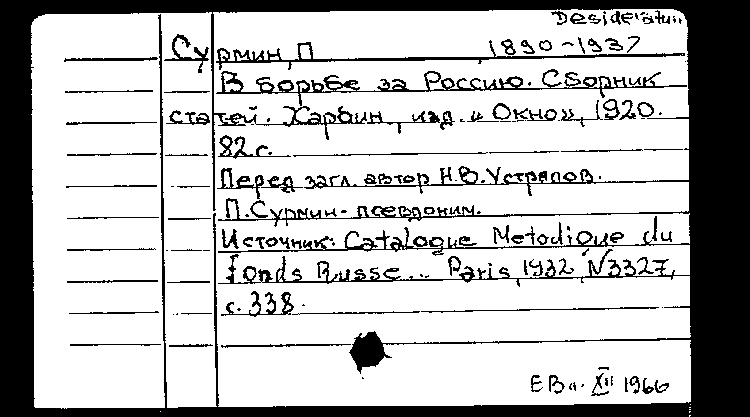 Desideratum
Сурмин, П. 1890-1937
В борьбе за Россию. Сборник
статей. Харбин, изд. "Окно", 1920.
82 с.
Перед загл. автор Н.В. Устрялов.
П. Сурмин - псевдоним.
Источник: Catalogue Metodique du
fonds Russe... Paris, 1932, N3327,
с. 338.
XII 1966